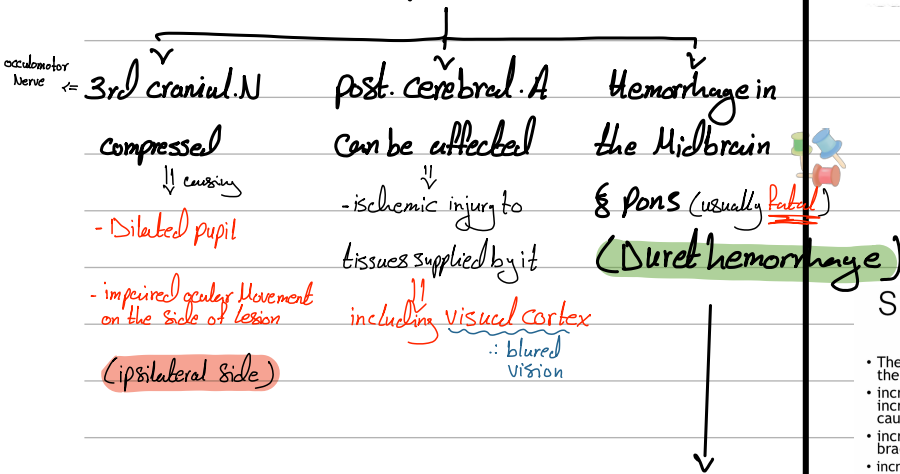 occulomotor
Nerve <=
3rd cranial.N
compressed
causing
- Dilated pupil
- impaired ocular Movement
on the side of lesion
(ipsilateral side)
post. cerebral. A
can be affected
-ischemic injury to
tissues supplied by it
including visual cortex
∴ blured
vision
Hemorrhage in
the Midbrain
& pons (usually fatal)
(Duret hemorrhage)
S
• The
the
• incr
incr
cau
• incr
bra
• incr